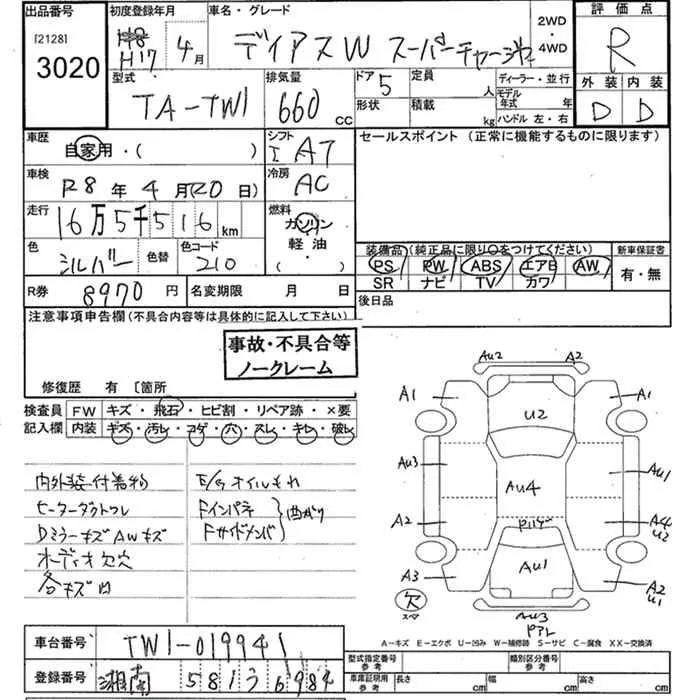 出品番号 初度登録年月 車名・グレード 2WD・4WD 評価点
[2128] 3020 H17 4月 ディアスW スーパーチャージャー R
型式 排気量 ドア 定員 人 ディーラー・並行
TA-TW1 660 CC 5 形状 積載 kg モデル年式 年 ハンドル 左・右
外装 内装
D D
車歴 自家用・( ) シフト I AT
セールスポイント (正常に機能するものに限ります)
車検 R8年4月(20日) 冷房 AC
走行 16万5千516km 燃料 ガソリン 軽油 ( ・ )
色 シルバー 色替 色コード 210
装備品 (純正品に限り○をつけてください) 新車保証書
PS PW ABS エアB AW 有・無
SR ナビ TV カワ
R券 8970円 名変期限 月 日 後日品
注意事項申告欄(不具合内容等は具体的に記入して下さい)
事故・不具合等
ノークレーム
修復歴 有 〔箇所
検査員 FW キズ・飛石・ヒビ割・リペア跡・×要
記入欄 内装 キズ・汚レ・コゲ・穴・スレ・キレ・破レ
内外装付着物 E/gオイルもれ
ヒーターダクトワレ Fインパネ
DミラーキズAWキズ Fサイドメンバ 曲がり
オーディオ欠穴
各キズ凹
Au2 A2
A1 A1
U2
Au3 Au1
Au4
A2 A4 U2
Au1
A3 A2 U1
欠
スペア
Au3
A-キズ E-エクボ U-凹み W-補修跡 S-サビ C-腐食 XX-交換済
車台番号 TW1-019941
登録番号 湘南 581 6984
型式指定番号 参考 類別区分番号 参考
車庫証明用 参考 長さ cm 幅 cm 高さ cm